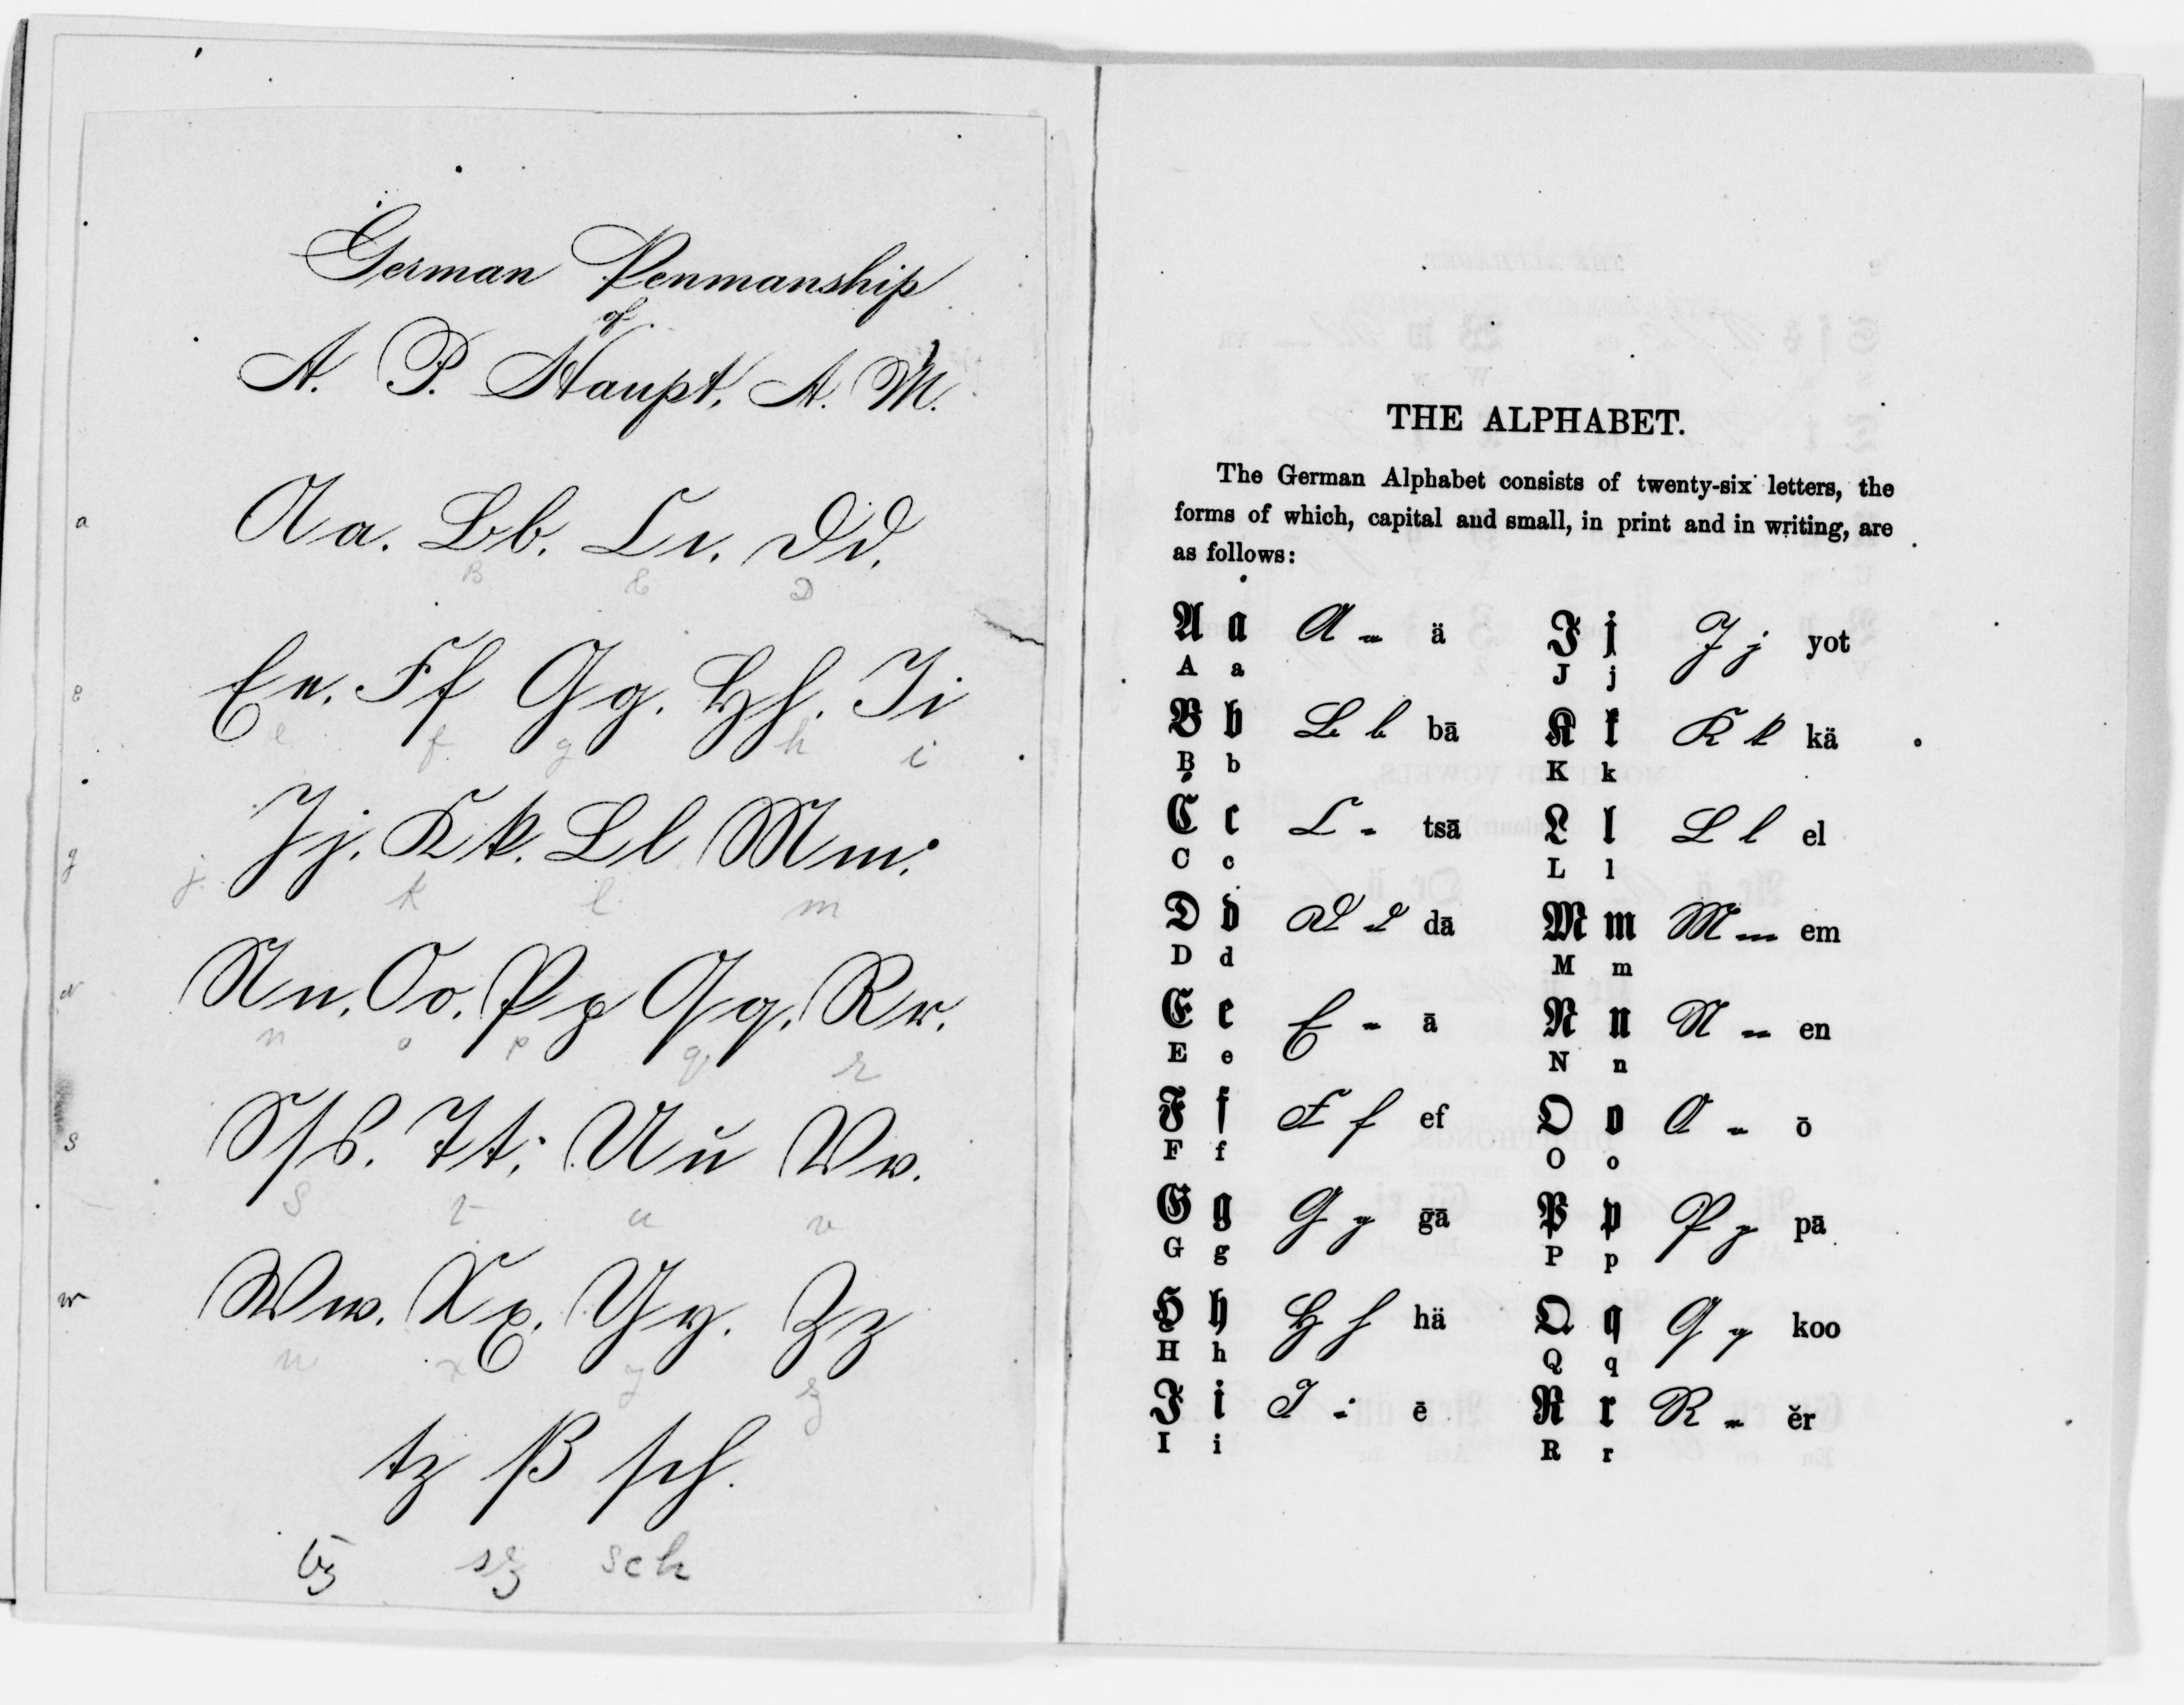 German Penmanship
of
A. P. Haupt, A. M.
a
Aa. Bb. Cc. Dd.
B C D
e
Ee. Ff Gg. Hh. Ii
e f g h i
g
Jj. Kk. Ll Mm.
j k l m
Nn. Oo. Pp Qq. Rr.
n o p q r
s
Sſs. Tt. Uu Vv.
s t u v
w
Ww. Xx. Yy. Zz
w x y z
tz ß sch.
tz sz sch
THE ALPHABET.
The German Alphabet consists of twenty-six letters, the
forms of which, capital and small, in print and in writing, are
as follows:
𝔄 𝔞 A a ä 𝔍 𝔧 J j yot
A a J j
𝔅 𝔟 B b bā 𝔎 𝔨 K k kä
B b K k
ℭ 𝔠 C c tsā 𝔏 𝔩 L l el
C c L l
𝔇 𝔡 D d dā 𝔐 𝔪 M m em
D d M m
𝔈 𝔢 E e ā 𝔑 𝔫 N n en
E e N n
𝔉 𝔣 F f ef 𝔒 𝔬 O o ō
F f O o
𝔊 𝔤 G g ḡā 𝔓 𝔭 P p pā
G g P p
ℌ 𝔥 H h hä 𝔔 𝔮 Q q koo
H h Q q
ℑ 𝔦 I i ē ℜ 𝔯 R r ĕr
I i R r